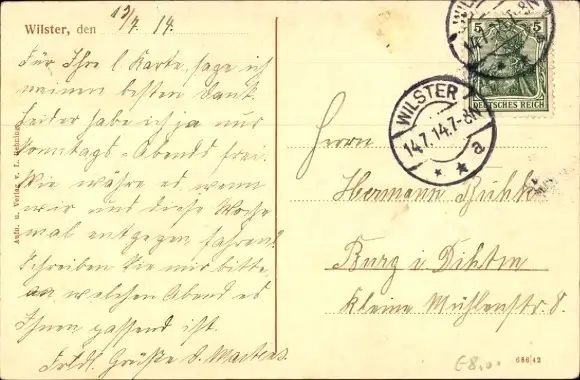 Wilster, den 13/7. 14.
Für Ihre l. Karte, sage ich
meinen besten Dank.
Leider habe ich ja nur
Sonntags-Abends frei.
Wie währe es, wenn
wir uns diese Woche
mal entgegen fahren?
Schreiben Sie mir bitte,
an welchen Abend es
Ihnen passend ist.
Frdl. Grüße
Aufn. u. Verlag v. L. Behning
WILSTER
14.7.14.7-8N
a
5 5
DEUTSCHES REICH
WILSTER
14.7.14.7-8N
Herrn
Hermann
Burg i. Dithm
Kleine Mühlenstr. 8.
E8,0
68642